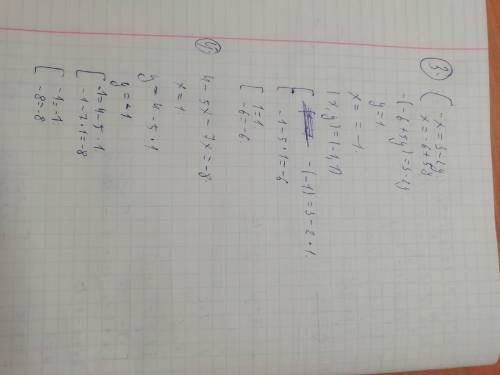 3. { -x = 3-2y
x = -6+5y
-(-6+5y) = 3-2y
y = 1
x = -1.
(x, y) = (-1, 1)
[ -(-1) = 3-2·1.
-1-5·1 = -6
[ 1 = 1
-6 = -6
4) 4-5x-7x = -8
x = 1
y = 4-5·1
y = -1
[ -1 = 4-5·1
-1-7·1 = -8
[ -1 = -1
-8 = -8